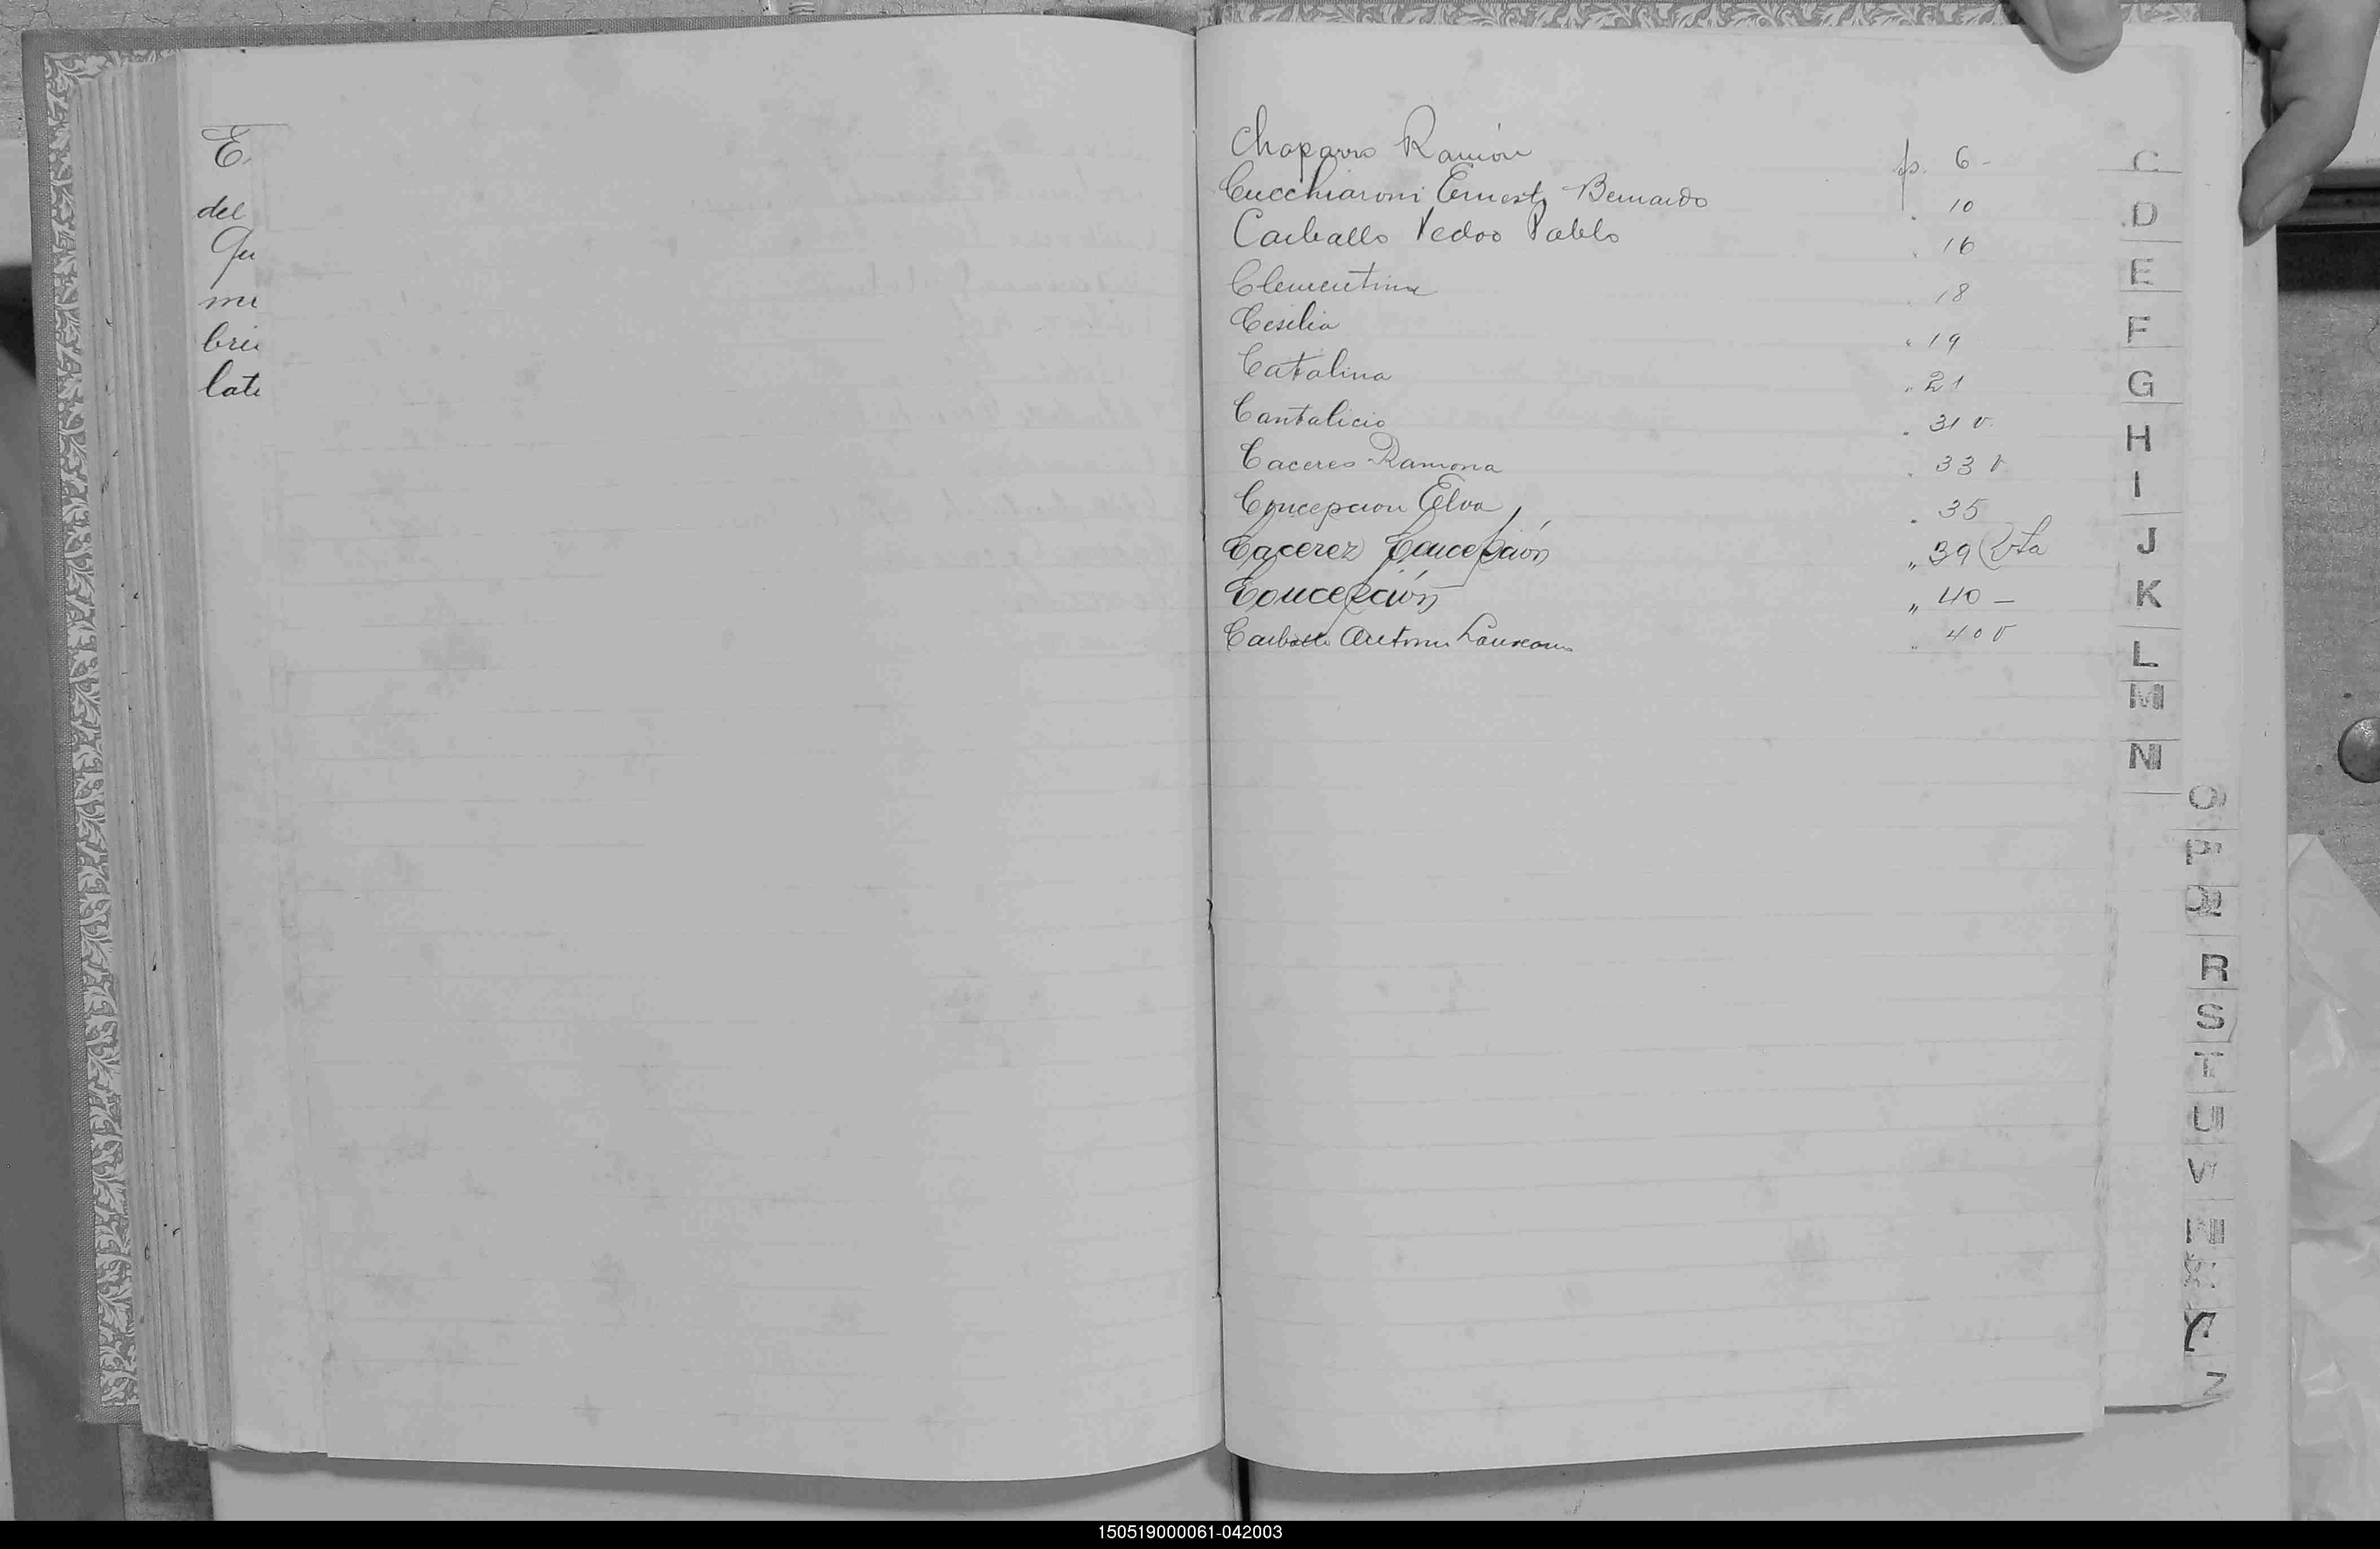 E.
del
Qu
mi
bri
lat
Chaparro Ramón fs. 6-
Cucchiaroni Ernesto Bernardo " 10
Carballo Pedro Pablo " 16
Clementina " 18
Cesilia " 19
Catalina " 21
Cantalicio " 31 v.
Caceres Ramona " 33 v
Concepcion Elva " 35
Cacerez Concepción " 39 Vta
Concepción " 40 -
Carballo Antonio Laureano " 40 v
C
D
E
F
G
H
I
J
K
L
M
N
O
P
Q
R
S
T
U
V
Y
Z
150519000061-042003